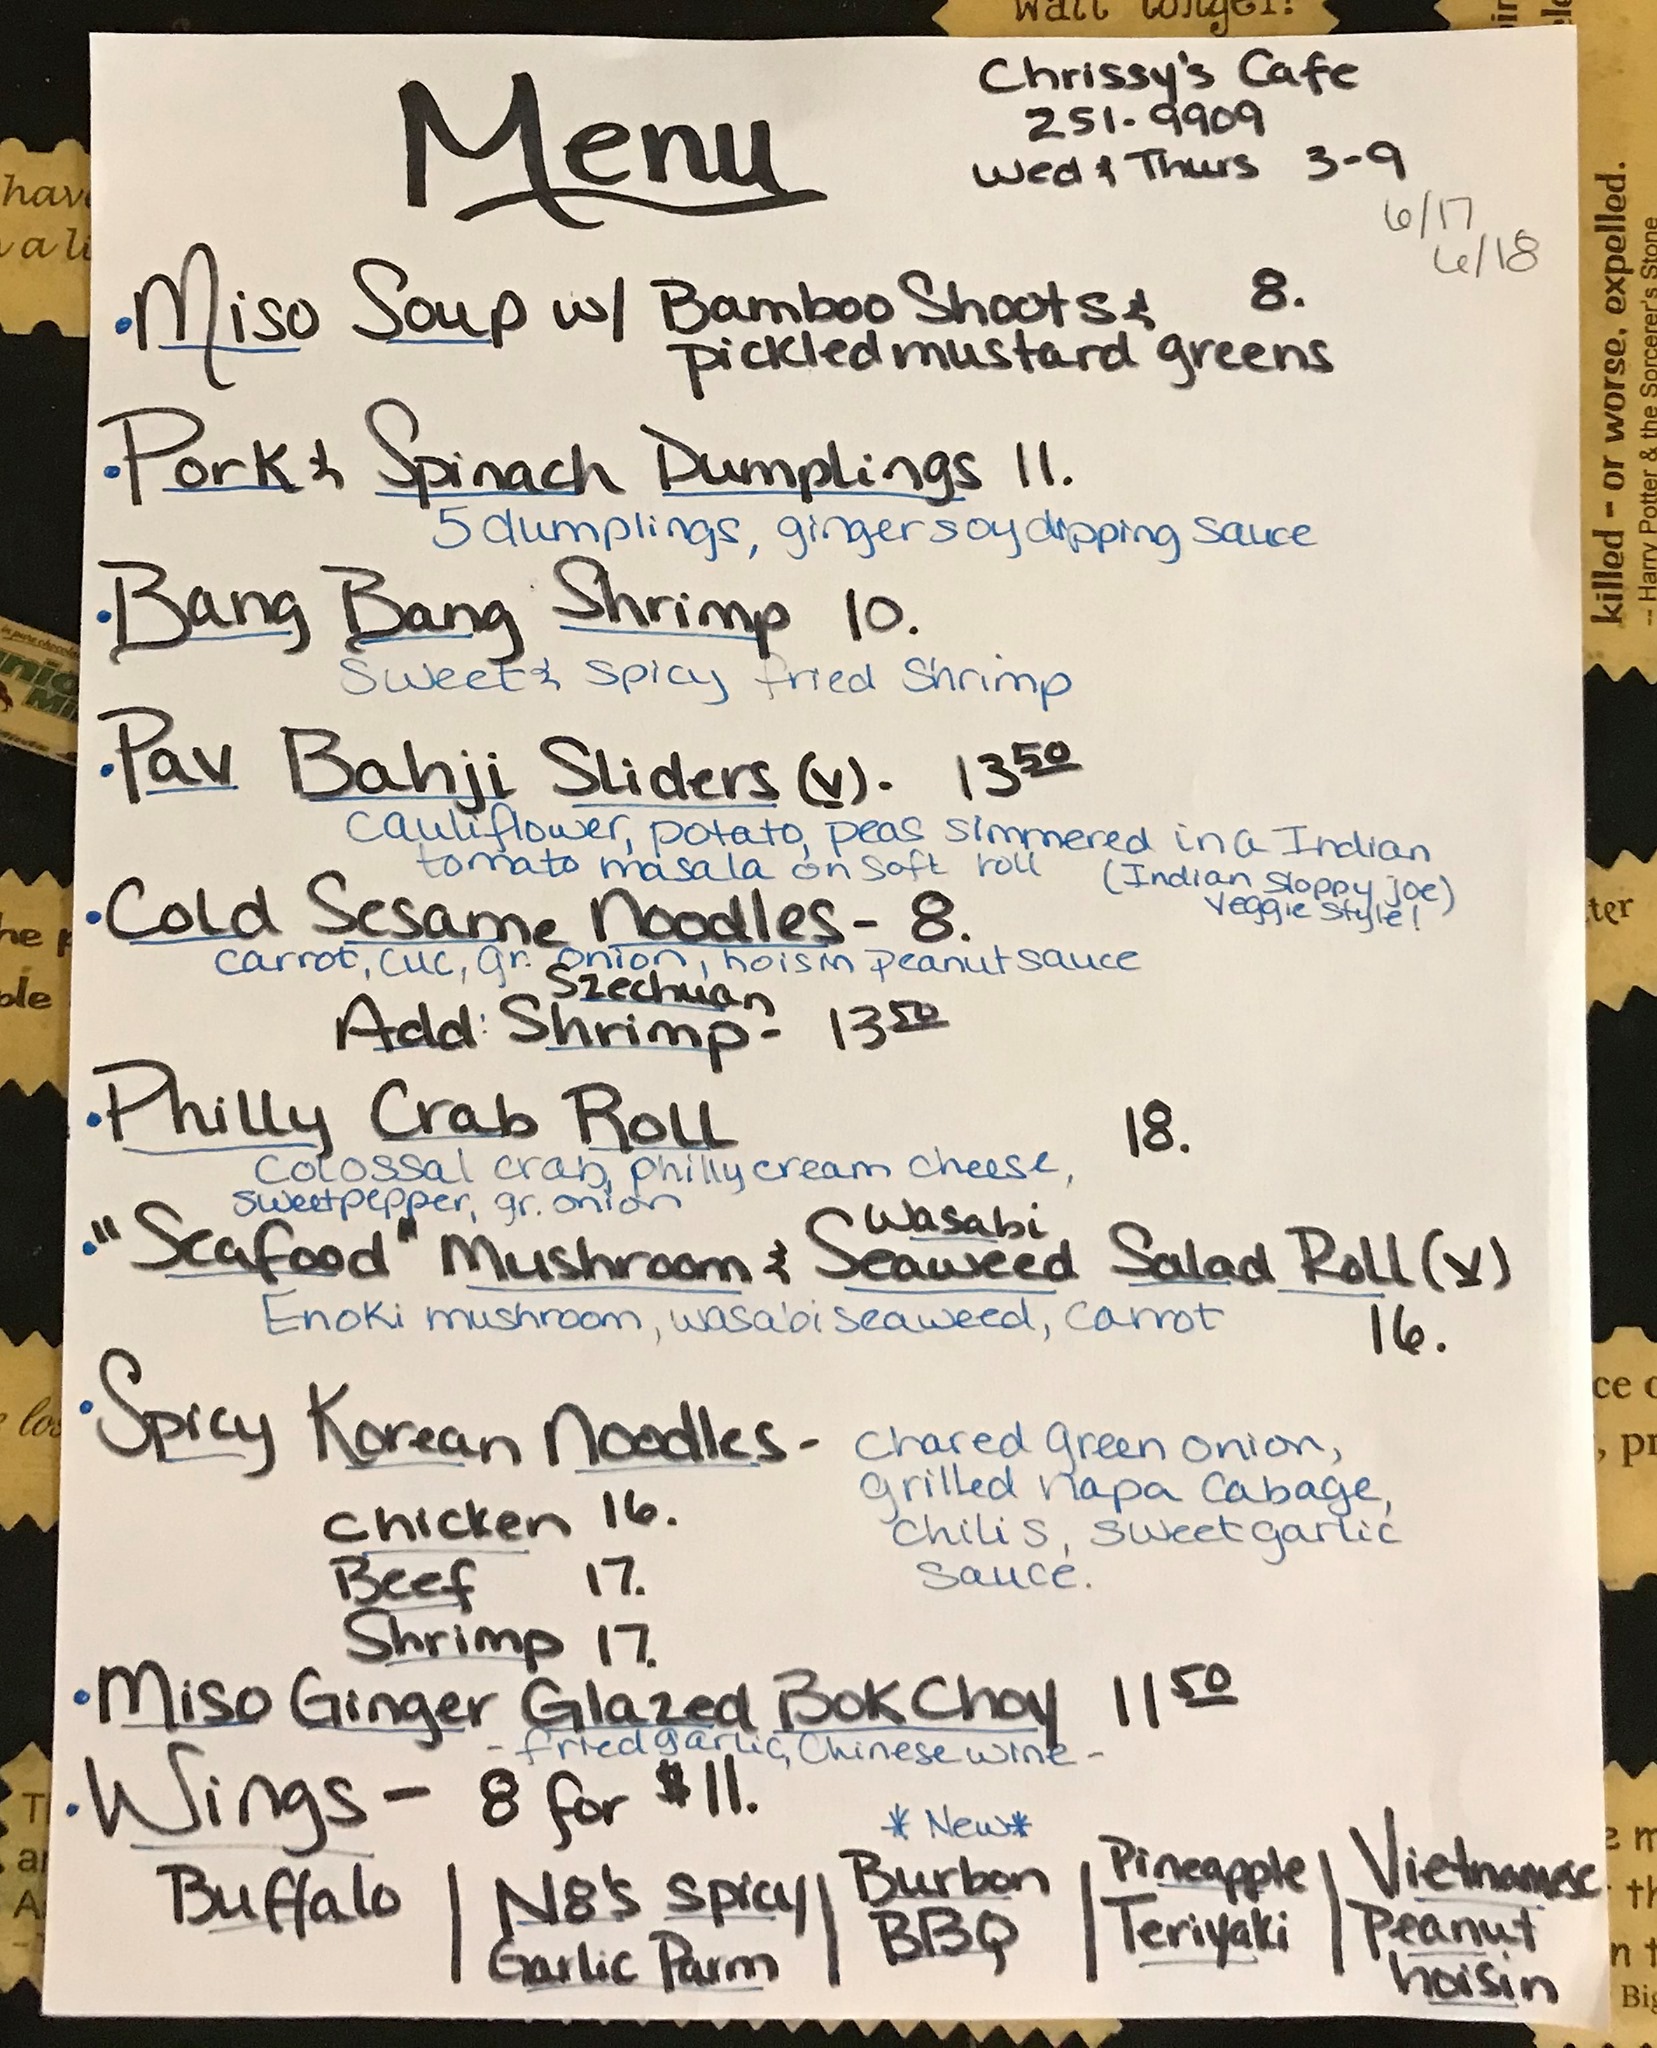 wait longer!
Menu
Chrissy's Cafe
251-9909
Wed & Thurs 3-9
6/17
6/18
• Miso Soup w/ Bamboo Shoots & 8.
pickled mustard greens
• Pork & Spinach Dumplings 11.
5 dumplings, ginger soy dipping sauce
• Bang Bang Shrimp 10.
Sweet & spicy fried Shrimp
• Pav Bahji Sliders (v). 13 50
cauliflower, potato, peas simmered in a Indian
tomato masala on soft roll (Indian sloppy joe)
veggie style!
• Cold Sesame Noodles - 8.
carrot, cuc, gr. onion, hoisin peanut sauce
Szechuan
Add: Shrimp - 13 50
• Philly Crab Roll 18.
Colossal crab, philly cream cheese,
sweet pepper, gr. onion
Wasabi
• "Seafood" Mushroom & Seaweed Salad Roll (v)
Enoki mushroom, wasabi seaweed, carrot 16.
• Spicy Korean Noodles - chared green onion,
grilled napa cabage,
chilis, sweet garlic
sauce.
Chicken 16.
Beef 17.
Shrimp 17.
• Miso Ginger Glazed Bok Choy 11 50
- fried garlic, Chinese wine -
• Wings - 8 for $11.
* New *
Buffalo | N8's Spicy | Burbon | Pineapple | Vietnamese
Garlic Parm BBQ Teriyaki Peanut
hoisin
killed - or worse, expelled.
-- Harry Potter & the Sorcerer's Stone